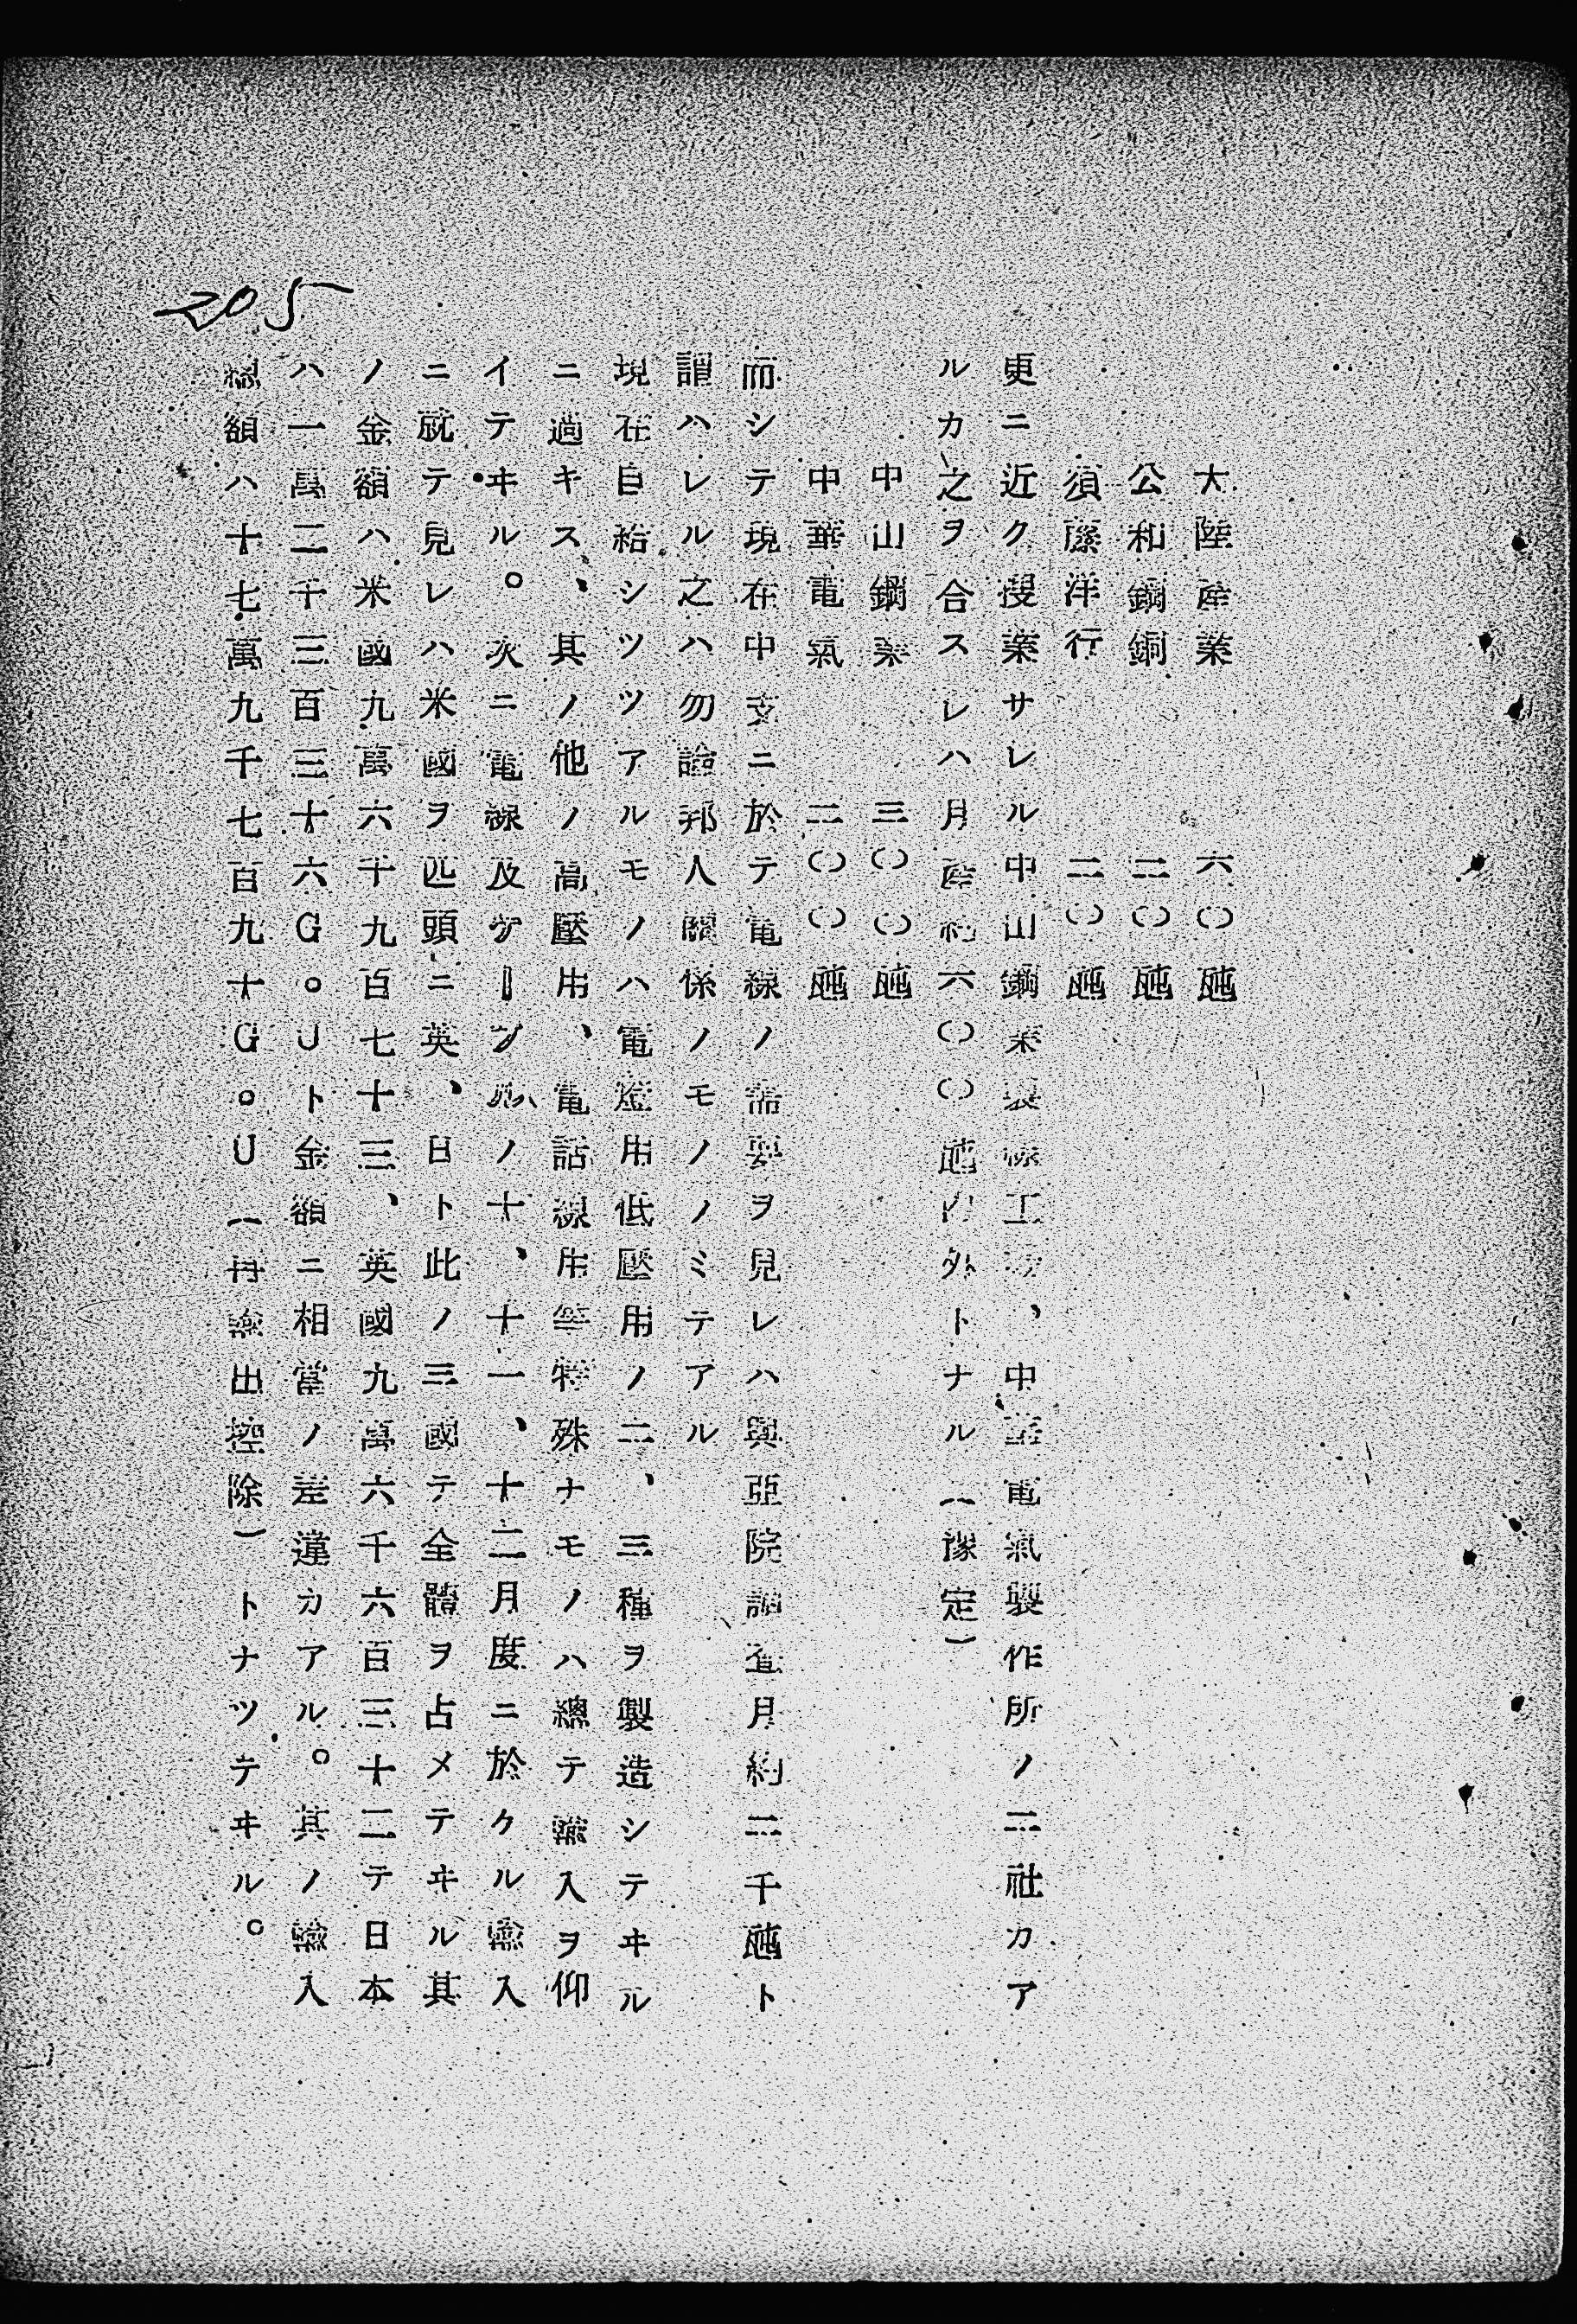 205
大陸産業 六〇瓲
公和鋼銅 二〇瓲
須藤洋行 二〇瓲
更ニ近ク授業サレル中山鋼業製線工、中華電氣製作所ノ二社カア
ルカ之ヲ合スレハ月産約六〇〇瓲内外トナル(豫定)
中山鋼業 三〇〇瓲
中華電氣 二〇〇瓲
而シテ現在中支ニ於テ電線ノ需要ヲ見レハ與亞院調査月約二千瓲ト
謂ハレル之ハ勿論邦人關係ノモノノミテアル
現在自給シツツアルモノハ電燈用低壓用ノ二、三種ヲ製造シテヰル
ニ過キス、其ノ他ノ高壓用、電話線用等特殊ナモノハ總テ輸入ヲ仰
イテヰル。次ニ電線及ケーブルノ十、十一、十二月度ニ於クル輸入
ニ就テ見レハ米國ヲ匹頭ニ英、日ト此ノ三國テ全體ヲ占メテヰル其
ノ金額ハ米國九萬六千九百七十三、英國九萬六千六百三十二テ日本
ハ一萬二千三百三十六G。Uト金額ニ相當ノ差違カアル。其ノ輸入
總額ハ十七萬九千七百九十G。U(再輸出控除)トナツテヰル。